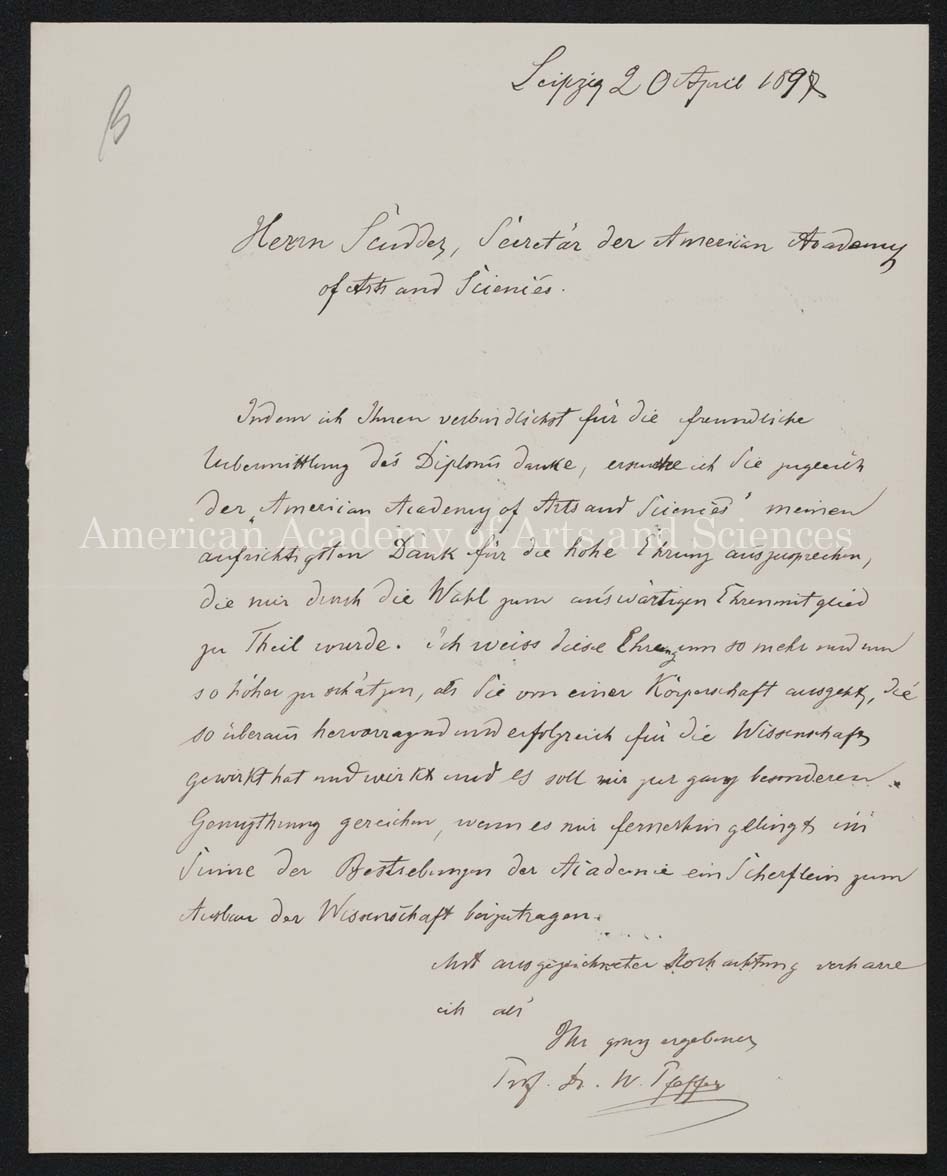 Leipzig 20 April 1897
B
Herrn Scudder, Secretär der American Academy
of Arts and Sciences.
Indem ich Ihnen verbindlichst für die freundliche
Uebermittlung des Diploms danke, ersuche ich Sie zugleich
der „American Academy of Arts and Sciences" meinen
American Academy of Arts and Sciences
aufrichtigsten Dank für die hohe Ehrung auszusprechen,
die mir durch die Wahl zum auswärtigen Ehrenmitglied
zu Theil wurde. Ich weiss diese Ehrung um so mehr und um
so höher zu schätzen, als sie von einer Körperschaft ausgeht, die
so überaus hervorragend und erfolgreich für die Wissenschaft
gewirkt hat und wirkt und es soll mir zur ganz besonderen
Genugthuung gereichen, wenn es mir fernerhin gelingt im
Sinne der Bestrebungen der Academie ein Scherflein zum
Ausbau der Wissenschaft beizutragen.
Mit ausgezeichneter Hochachtung verharre
ich als
Ihr ganz ergebener
Prof. Dr. W. Pfeffer